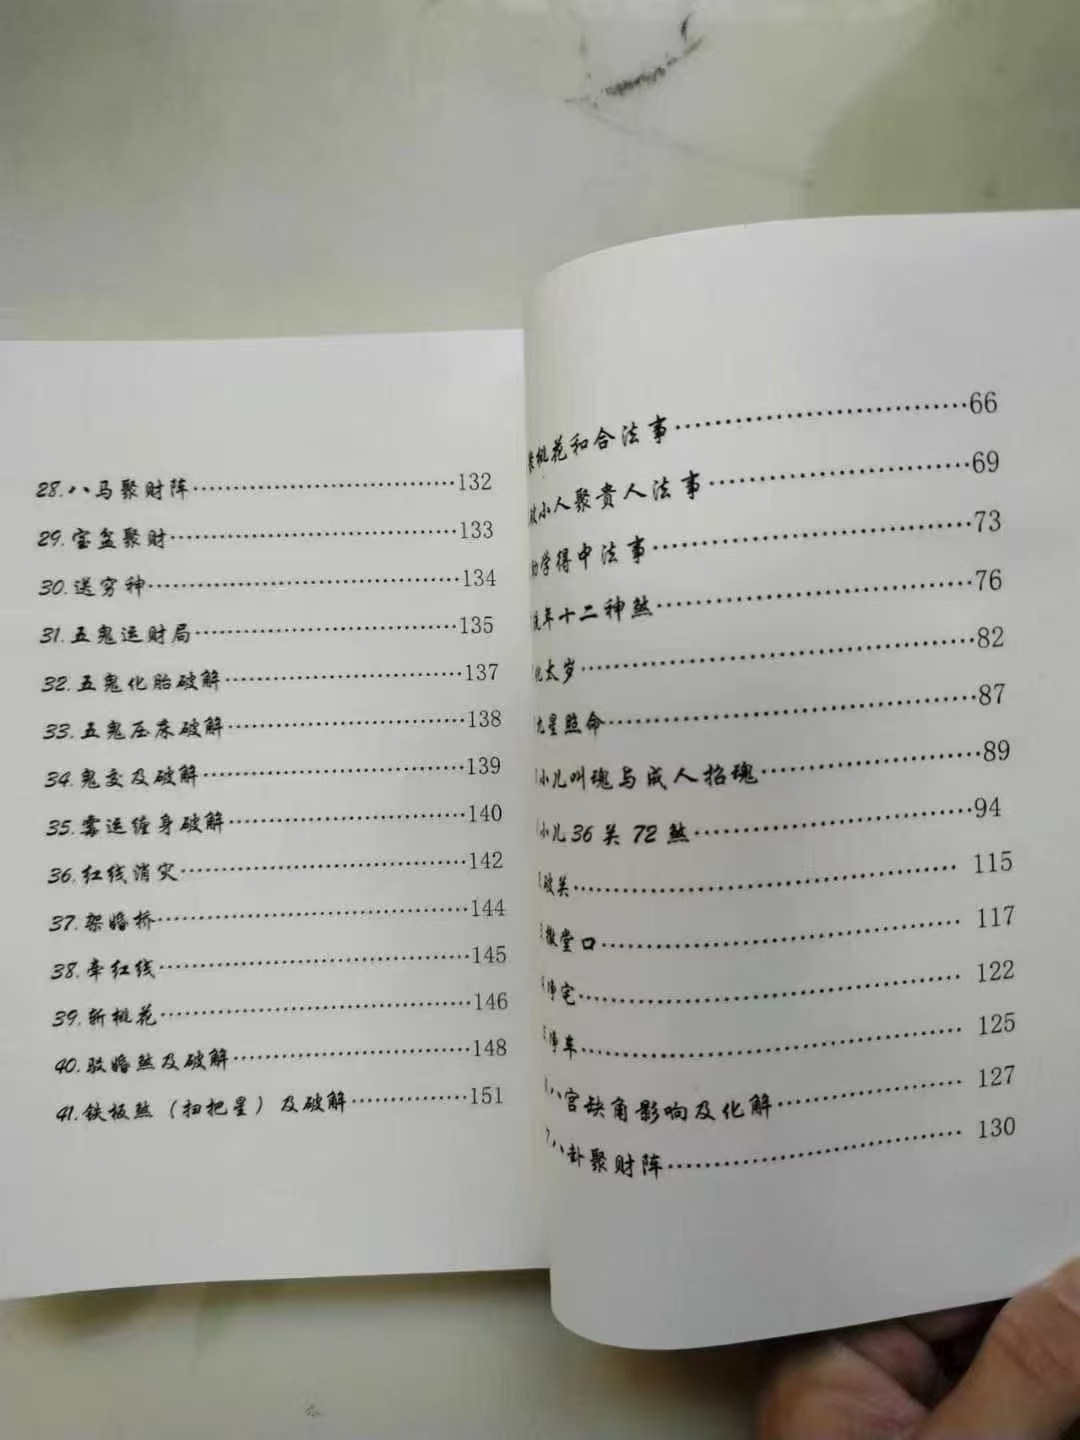 28.八马聚财阵……132
29.宝盆聚财……133
30.送穷神……134
31.五鬼运财局……135
32.五鬼化胎破解……137
33.五鬼压床破解……138
34.鬼交及破解……139
35.霉运缠身破解……140
36.红线消灾……142
37.架婚桥……144
38.牵红线……145
39.斩桃花……146
40.驳婚煞及破解……148
41.铁板煞（扫把星）及破解……151
桃花和合法事……66
小人聚贵人法事……69
学得中法事……73
年十二神煞……76
太岁……82
九星照命……87
小儿叫魂与成人招魂……89
小儿36关72煞……94
破关……115
堂口……117
净宅……122
净车……125
八宫缺角影响及化解……127
7八卦聚财阵……130